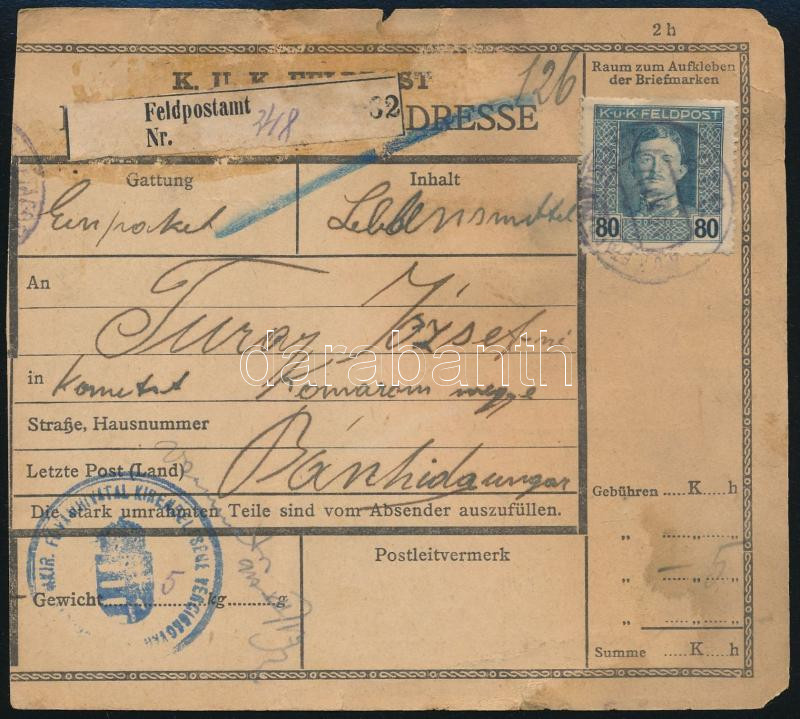 2 h
Raum zum Aufkleben
der Briefmarken
K. U. K. FELDPOST
DRESSE
126
Feldpostamt 32
Nr. 348
K.U.K. FELDPOST
80 80
Gattung
Inhalt
Lebensmittel
An
Turay József né
in Kometat Komárom megye
Straße, Hausnummer
Letzte Post (Land) Bánhida ungar
Die stark umrahmten Teile sind vom Absender auszufüllen.
Gebühren K h
" "
" " – 5
" "
Summe K h
Postleitvermerk
Gewicht 5 kg g
darabanth